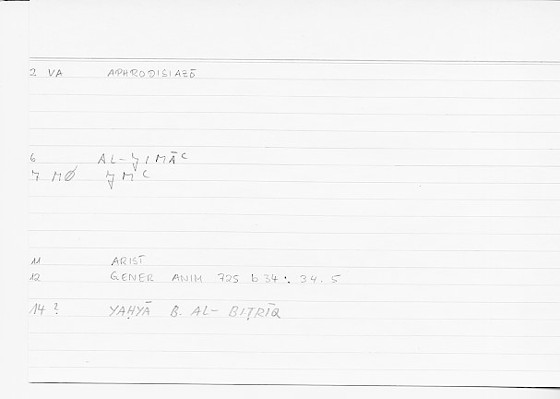 2 VA APHRODISIAZŌ
6 AL-ǦIMĀC
7 MØ ǦMC
11 ARIST
12 GENER ANIM 725 b 34 : 34.5
14 ? YAḤYĀ B. AL-BIṬRĪQ